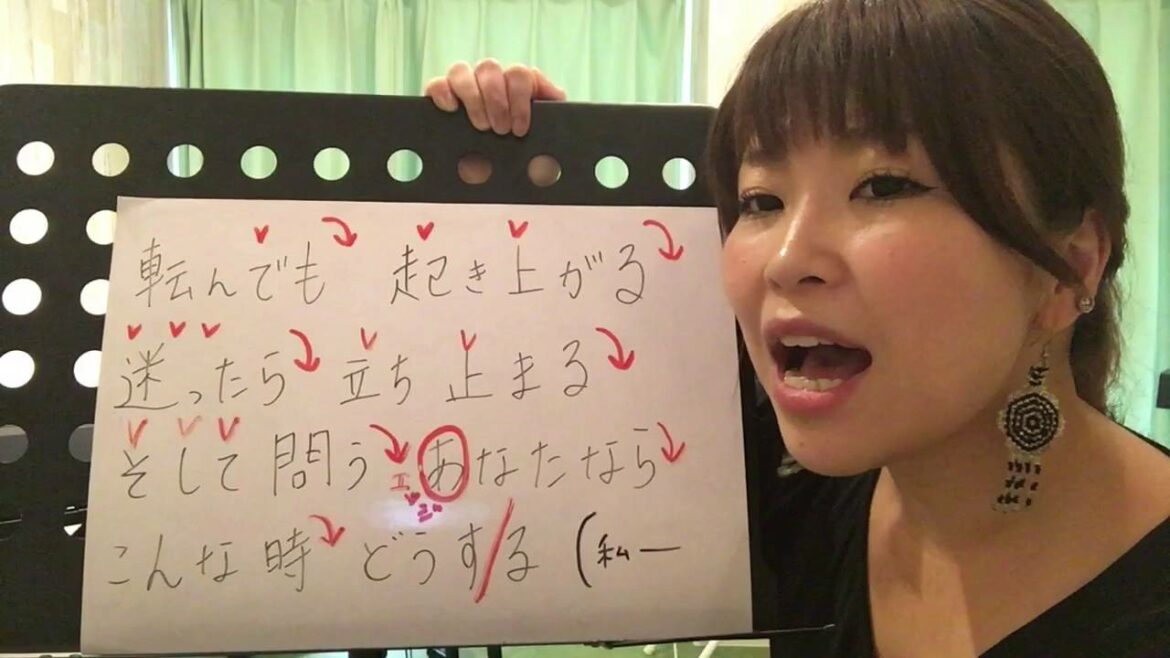 転んでも 起き上がる
迷ったら 立ち止まる
そして 問う あなたなら
こんな時 どうする (私ー